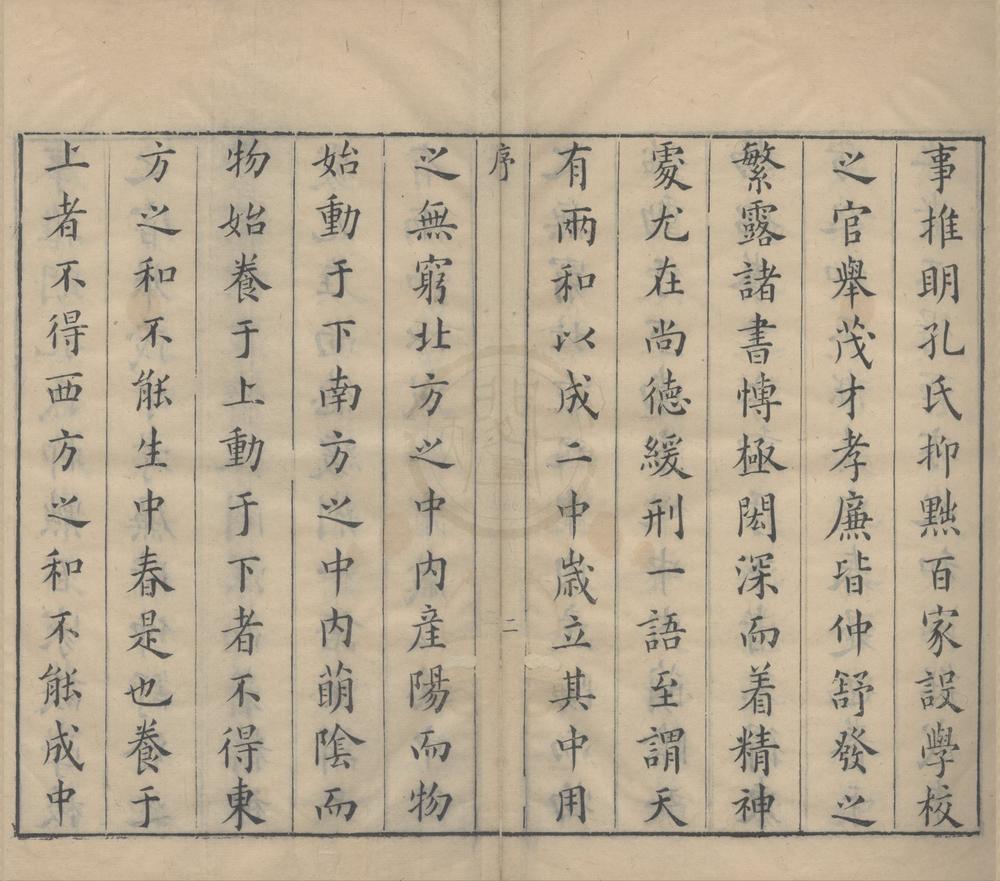 事推明孔氏抑黜百家設學校
之官舉茂才孝廉皆仲舒發之
繁露諸書慱極閎深而着精神
處尤在尚德緩刑一語至謂天
有兩和以成二中歲立其中用
序
二
之無窮北方之中內產陽而物
始動于下南方之中內萠陰而
物始養于上動于下者不得東
方之和不能生中春是也養于
上者不得西方之和不能成中